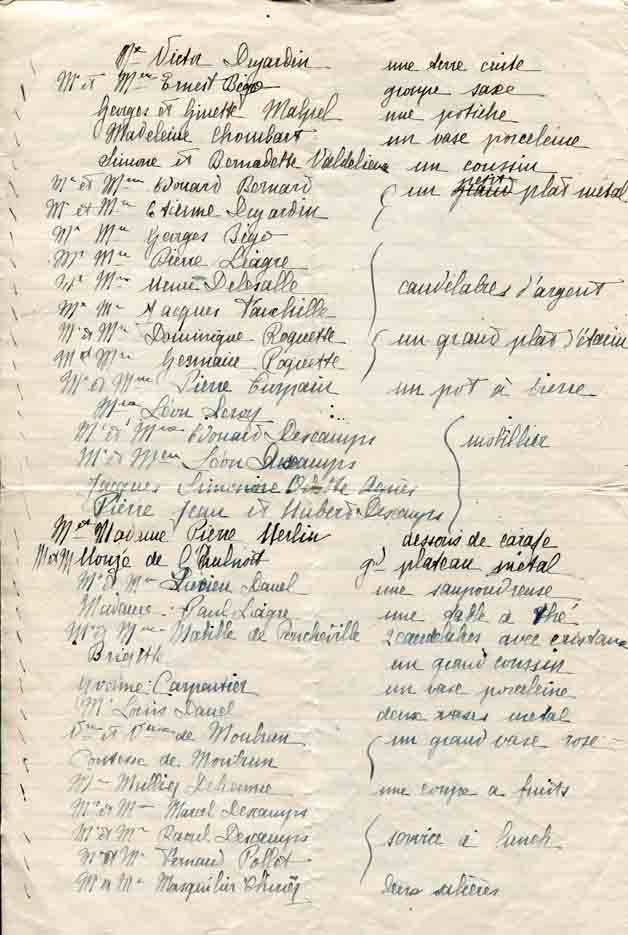 Mr Victor Dujardin une terre cuite
Mr et Mme Ernest Bégo groupe saxe
Georges et Ginette Malpel une potiche
Madeleine Chombart un vase porceleine
Simone et Bernadette un coussin
Mr et Mme Edouard Bernard un petit plat métal
Mr et Mme Etienne Dujardin
Mr Mme Georges Bégo
Mr Mme Pierre Liagre
Mr Mme Henri Delesalle candélabres d'argent
Mr Mme Jacques
Mr et Mme Dominique Roquette un grand plat d'étain
Mr et Mme Germaine Roquette
Mr et Mme Pierre un pot à bierre
Mme Léon Leroy
Mr et Mme Edouard Descamps mobillier
Mr et Mme Léon Descamps
Jacques Simonne
Pierre Jean et Hubert Descamps
Mr et Madame Pierre Herlin dessous de carafe
Mr et M de gd plateau métal
Mr et Mme Lucien Danel une saupoudreuse
Madame Paul Liagre une table à thé
Mr et Mme de 2 candelabres avec
Brigitte un grand coussin
Yvonne Carpentier un vase porceleine
Mr Louis Danel deux vases metal
et de Montrun un grand vase rose
Comtesse de Montrun
Mme Mulliez une coupe a fruits
Mr et Mme Marcel Descamps
Mr et Mme Raoul Descamps service à lunch
Mr et Me Fernand Pollet
Mr et Me deux salières